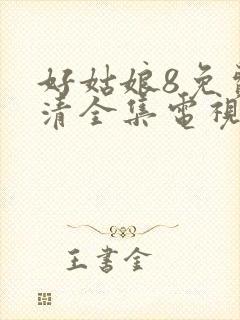 好姑娘8免
清全集電視
王書金